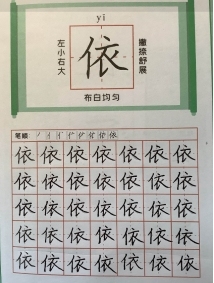 yī
左小右大
依
撇捺舒展
布白均匀
笔顺
依依依依依依依
依依依依依依依
依依依依依依依
依依依依依依依
依依依依依依依